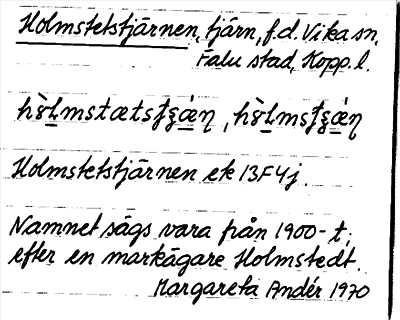 Holmstetstjärnen, tjärn, f.d. Vika sn.
Falu stad, Kopp. l.
Holmstetstjärnen ek 13F4j.
Namnet sägs vara från 1900-t,
efter en markägare Holmstedt.
Margareta Andér 1970